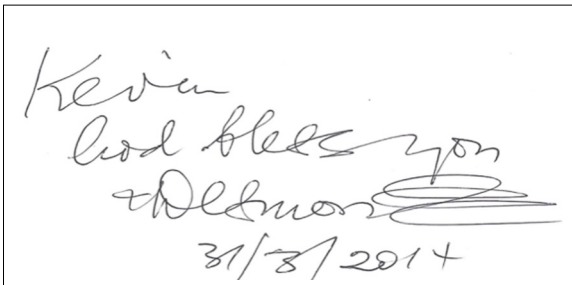 Kevin
God bless you
+Desmond
31/3/2014